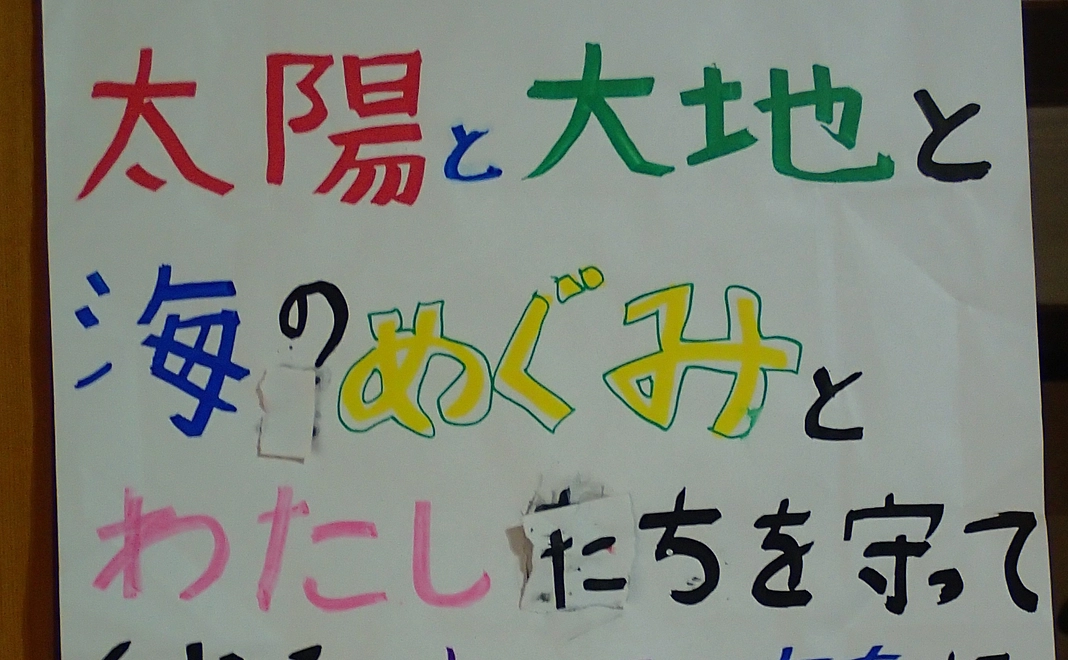 太陽と大地と
海のめぐみと
わたしたちを守って